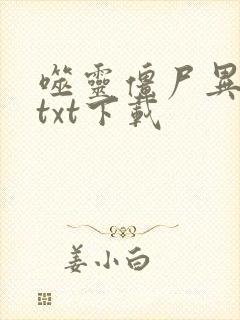 噬靈僵尸異
txt下載
姜小白